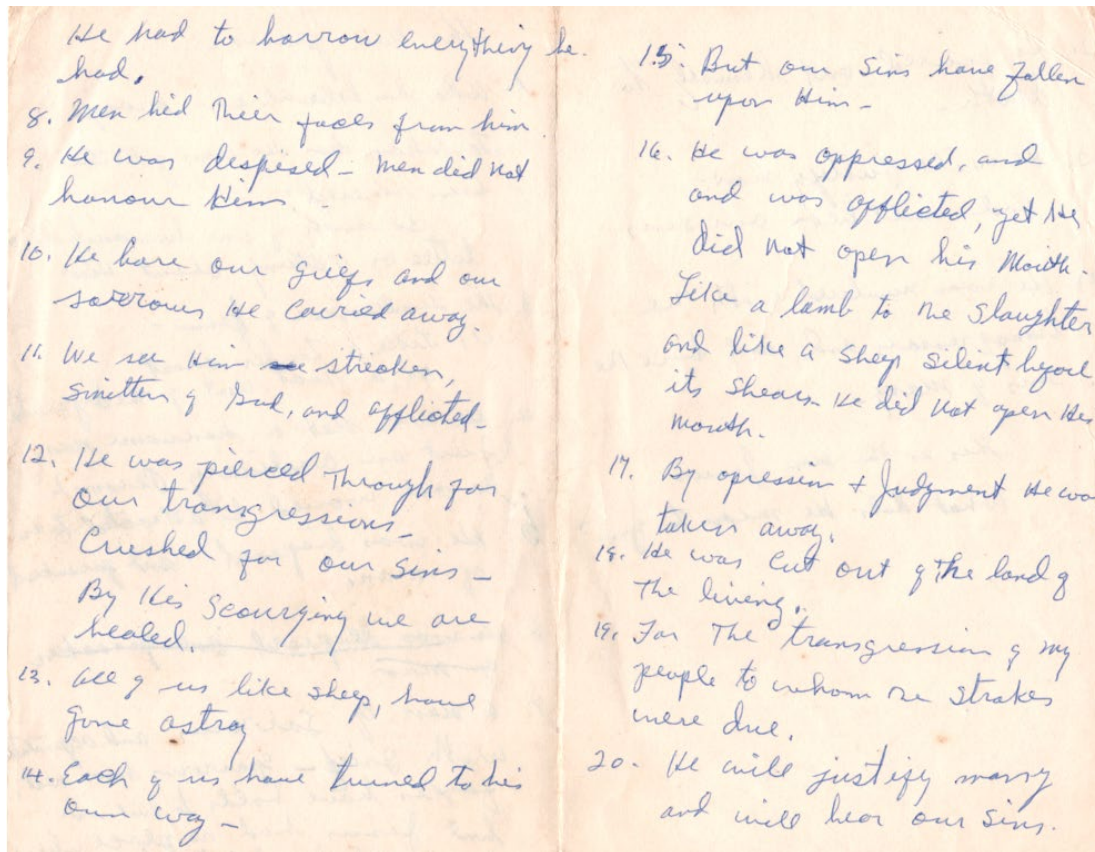 He had to borrow everything he
had.
8. Men hid Their faces from him
9. He was despised - Men did not
honour Him -
10. He bore our griefs and our
sorrows He carried away.
11. We see Him streaken,
smitten of God, and afflicted -
12. He was pierced Through for
our transgressions -
Crushed for our sins -
By His Scourging we are
healed.
13. All of us like sheep, have
gone astray
14. Each of us have turned to his
own way -
15. But our sins have fallen
upon Him -
16. He was oppressed, and
and was afflicted, yet He
did not open his Mouth -
Like a lamb to the Slaughter
and like a sheep silent before
its shears He did not open His
mouth.
17. By opression + Judgment He was
taken away.
18. He was cut out of the land of
the living.
19. For The transgression of my
people to whom the strokes
were due.
20. He will justify many
and will bear our sins.